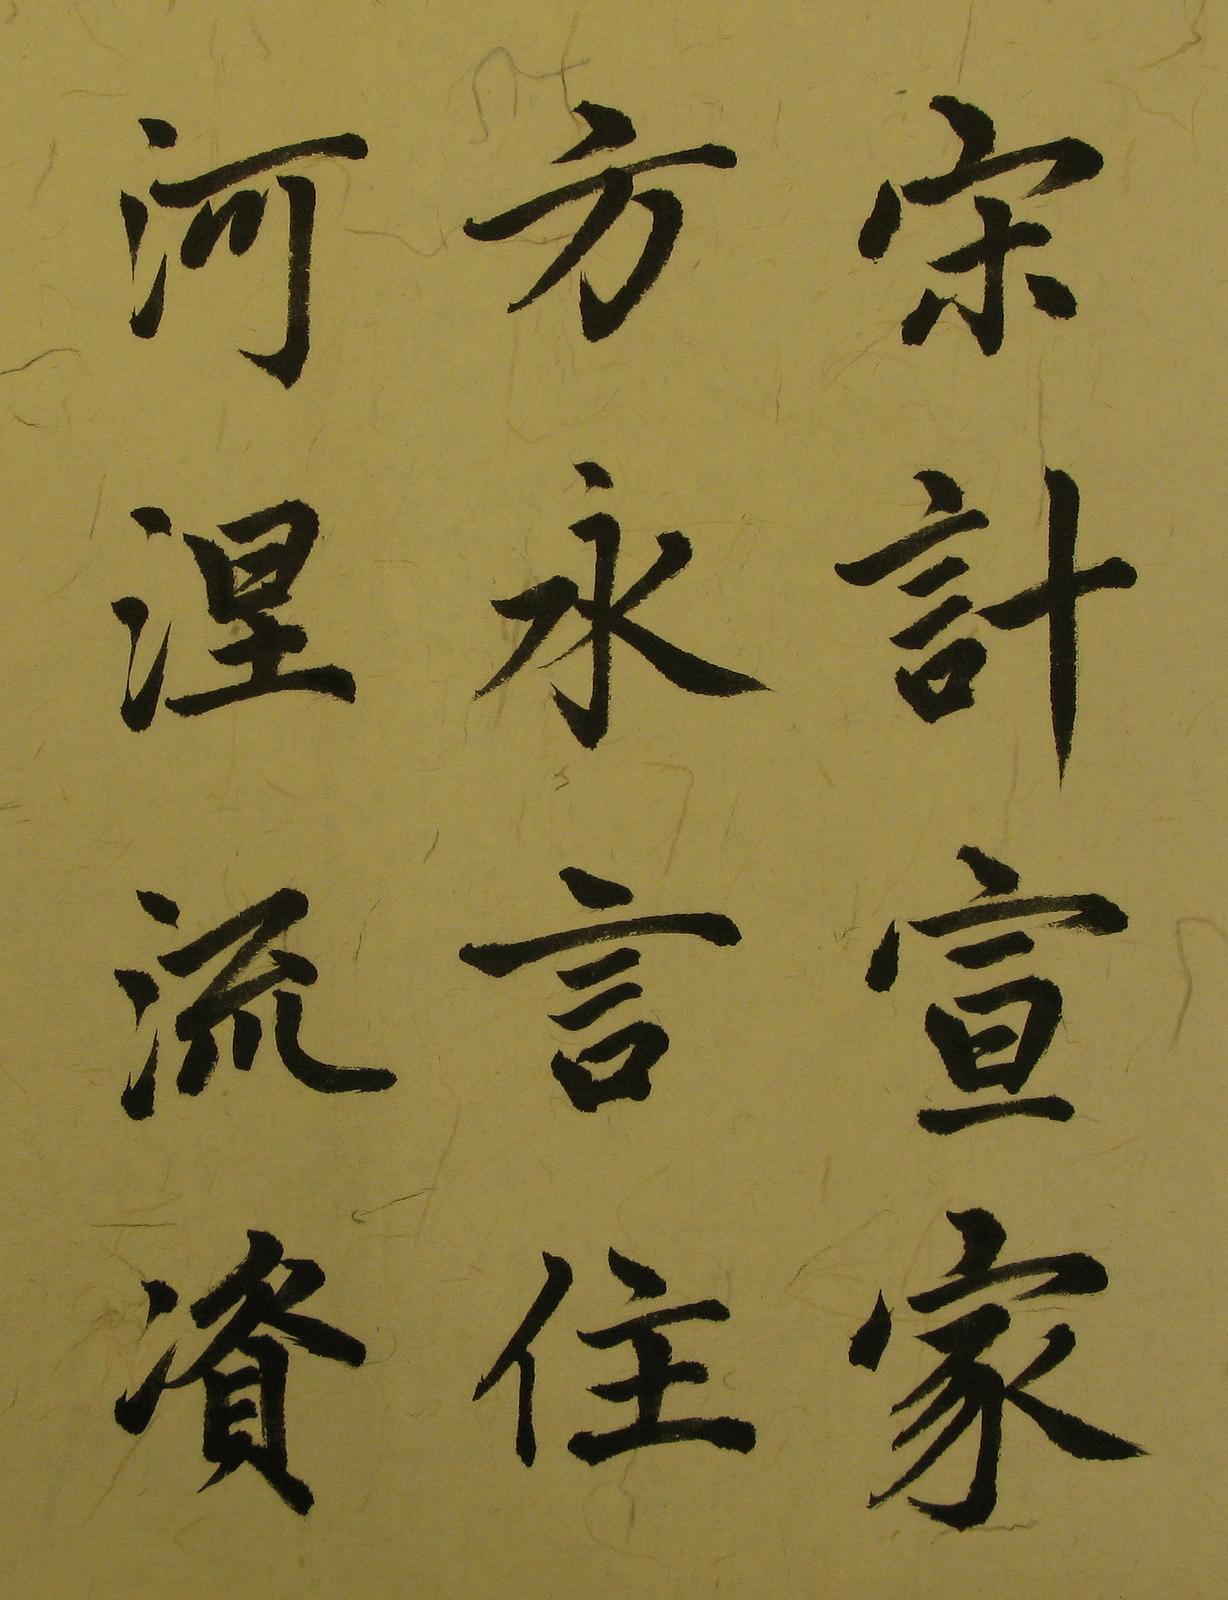 宋計宣家
方永言住
河涅流資